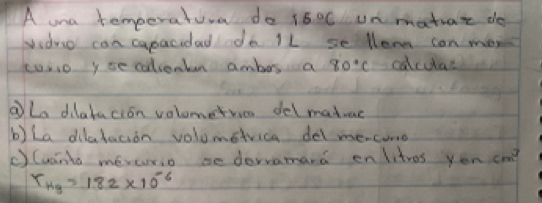 A una temperatura de 15°C un matraz de
vidrio con capacidad de 1L se llena con mer-
curio y se calientan ambos a 80°C calcular
a) La dilatación volumetrica del matraz
b) La dilatación volumétrica del mercurio
c) Cuánto mércurio se derramará en litros y en cm³
γHg = 182 x 10⁻⁶